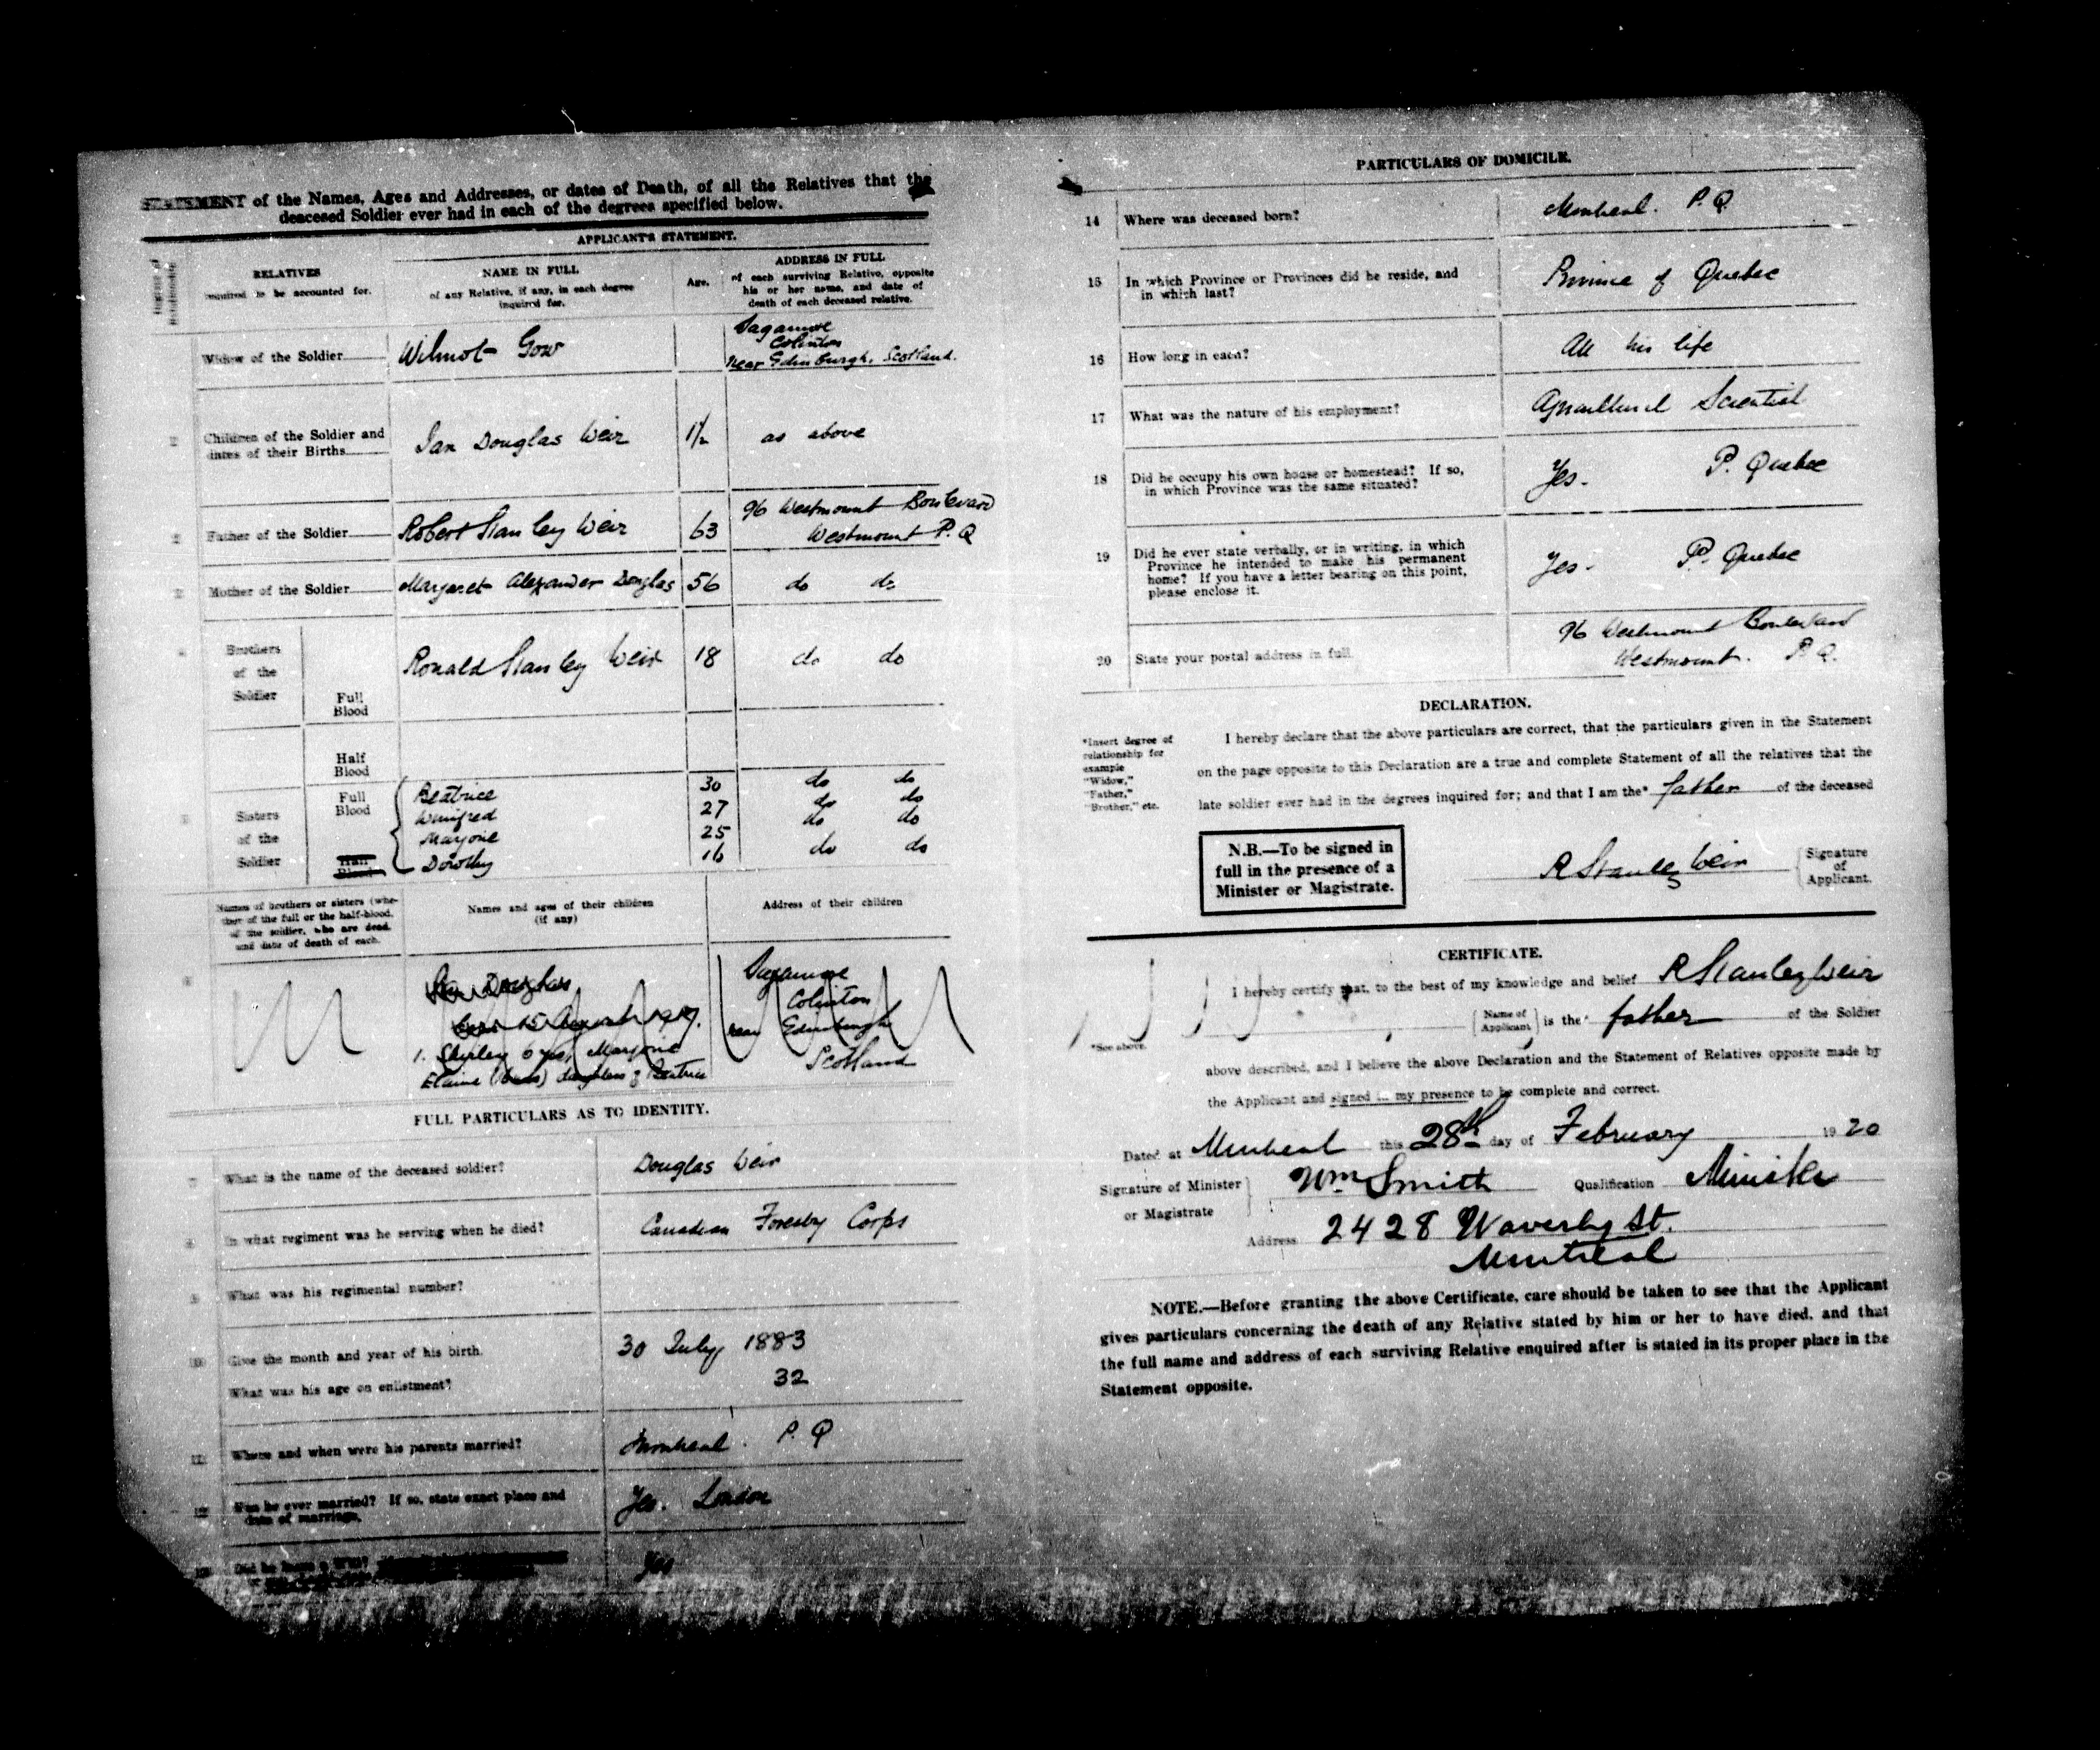 STATEMENT of the Names, Ages and Addresses, or dates of Death, of all the Relatives that the
deceased Soldier ever had in each of the degrees specified below.
APPLICANT'S STATEMENT.
RELATIVES
required to be accounted for.
NAME IN FULL
of any Relative, if any, in each degree
inquired for.
Age.
ADDRESS IN FULL
of each surviving Relative, opposite
his or her name, and date of
death of each deceased relative.
Widow of the Soldier
Wilmot Gow
Sagamore
Colinton
near Edinburgh, Scotland.
Children of the Soldier and
dates of their Births
Ian Douglas Weir
1½
as above
Father of the Soldier
Robert Stanley Weir
63
96 Westmount Boulevard
Westmount P.Q
Mother of the Soldier
Margaret Alexander Douglas
56
do do
Brothers
of the
Soldier
Full
Blood
Ronald Stanley Weir
18
do do
Half
Blood
Sisters
of the
Soldier
Full
Blood
Half
Blood
Beatrice 30 do do
Winifred 27 do do
Marjorie 25 do do
Dorothy 16 do do
Names of brothers or sisters (whe-
ther of the full or the half-blood,
of the soldier, who are dead,
and date of death of each.
Names and ages of their children
(if any)
Address of their children
Ian Douglas
1. Shirley 6 yrs, Marjorie
Elaine daughters of Beatrice
Sagamore
Colinton
near Edinburgh
Scotland
FULL PARTICULARS AS TO IDENTITY.
What is the name of the deceased soldier?
Douglas Weir
In what regiment was he serving when he died?
Canadian Forestry Corps
What was his regimental number?
10 Give the month and year of his birth.
30 July 1883
What was his age on enlistment?
32
Where and when were his parents married?
Montreal. P.Q
Was he ever married? If so, state exact place and
date of marriage.
Yes. London
Did he leave a Will?
Yes
PARTICULARS OF DOMICILE.
14 Where was deceased born?
Montreal. P.Q.
15 In which Province or Provinces did he reside, and
in which last?
Province of Quebec
16 How long in each?
All his life
17 What was the nature of his employment?
Agricultural Scientist
18 Did he occupy his own house or homestead? If so,
in which Province was the same situated?
Yes. P. Quebec
19 Did he ever state verbally, or in writing, in which
Province he intended to make his permanent
home? If you have a letter bearing on this point,
please enclose it.
Yes. P. Quebec
20 State your postal address in full.
96 Westmount Boulevard
Westmount. P.Q.
DECLARATION.
*Insert degree of
relationship for
example
"Widow,"
"Father,"
"Brother," etc.
I hereby declare that the above particulars are correct, that the particulars given in the Statement
on the page opposite to this Declaration are a true and complete Statement of all the relatives that the
late soldier ever had in the degrees inquired for; and that I am the* father of the deceased
N.B.—To be signed in
full in the presence of a
Minister or Magistrate.
R Stanley Weir
Signature
of
Applicant.
CERTIFICATE.
I hereby certify that, to the best of my knowledge and belief R Stanley Weir
Name of
Applicant
is the* father of the Soldier
*See above.
above described, and I believe the above Declaration and the Statement of Relatives opposite made by
the Applicant and signed in my presence to be complete and correct.
Dated at Montreal this 28th day of February 1920
Signature of Minister
or Magistrate
Wm Smith Qualification Minister
Address 2428 Waverly St.
Montreal
NOTE.—Before granting the above Certificate, care should be taken to see that the Applicant
gives particulars concerning the death of any Relative stated by him or her to have died, and that
the full name and address of each surviving Relative enquired after is stated in its proper place in the
Statement opposite.